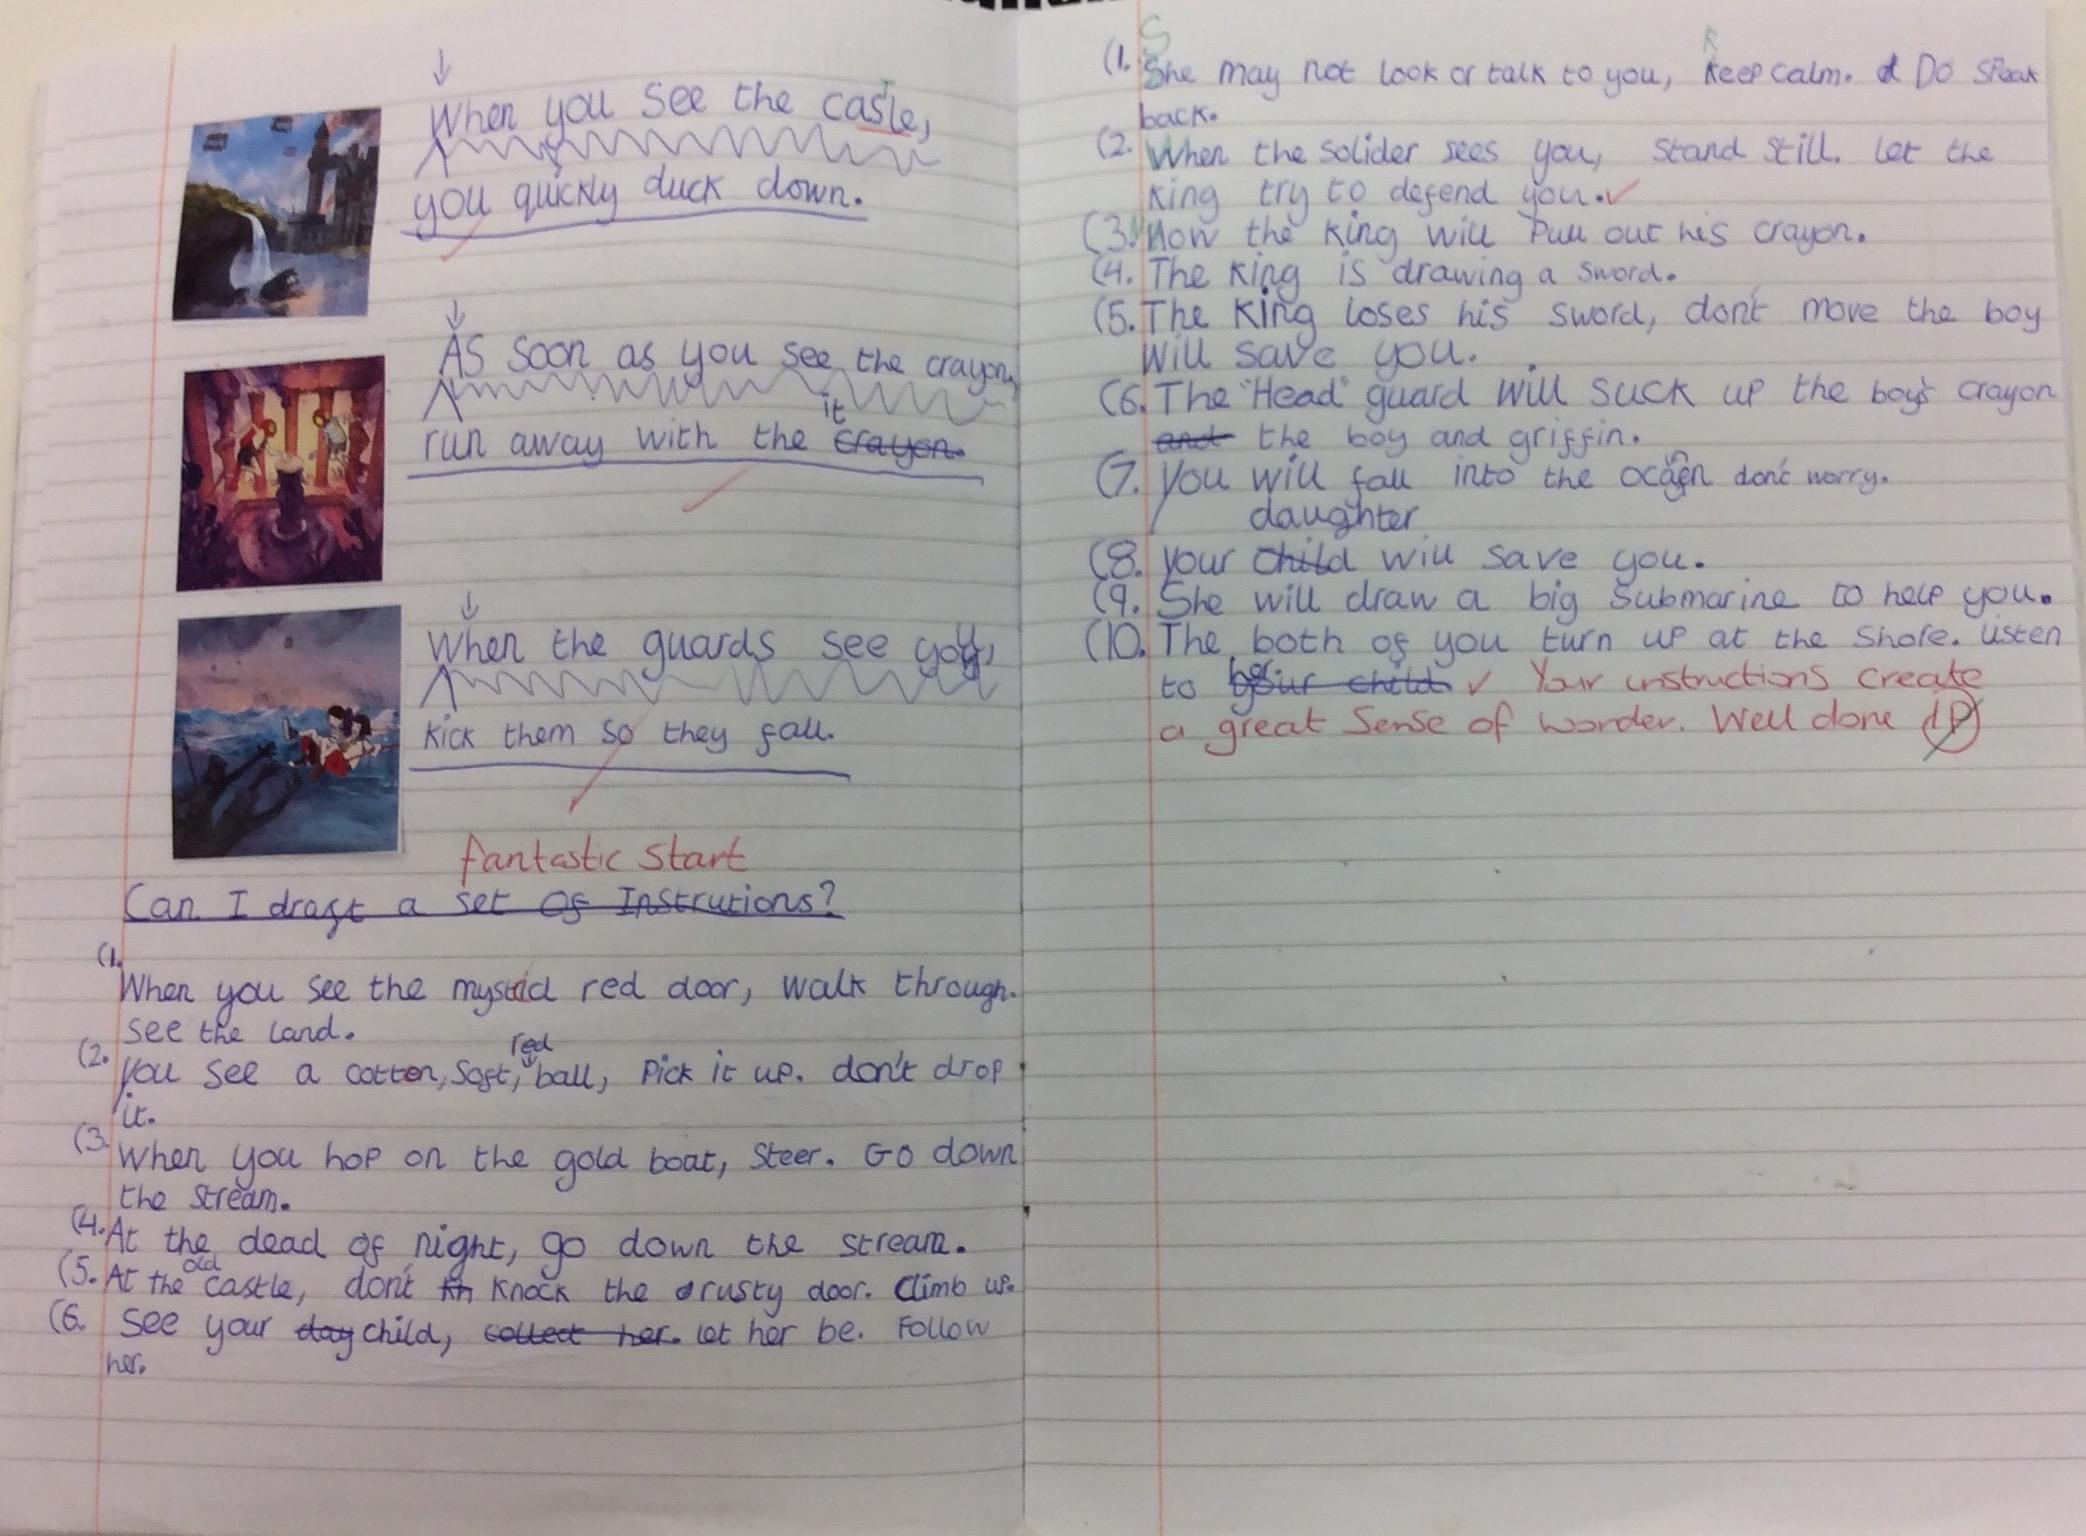 When you see the castle,
you quickly duck down.
As soon as you see the crayon,
it
run away with the crayon.
When the guards see you,
kick them so they fall.
fantastic start
Can I draft a set of Instrutions?
(1.
When you see the mystical red door, walk through.
see the land.
red
(2. you see a cotten, soft, ball, Pick it up. don't drop
it.
(3. When you hop on the gold boat, steer. Go down
the stream.
(4. At the dead of night, go down the stream.
old
(5. At the castle, don't kn knock the rusty door. Climb up.
(6. See your day child, collect her. let her be. Follow
her.
S R
(1. She may not look or talk to you, keep calm. Do speak
back.
(2. When the solider sees you, stand still. Let the
king try to defend you.
(3. Now the king will pull out his crayon.
(4. The king is drawing a sword.
(5. The king loses his sword, don't move the boy
will save you.
(6. The "Head" guard will suck up the boy's crayon
and the boy and griffin.
(7. you will fall into the ocaen don't worry.
daughter
(8. your child will save you.
(9. She will draw a big submarine to help you.
(10. The both of you turn up at the shore. Listen
her
to your child. Your instructions create
a great sense of wonder. Well done dP